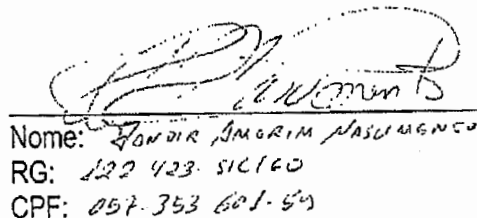 Nome: Jandir Amorim Nascimento
RG: 122 423. SIC/GO
CPF: 057-353 601-59